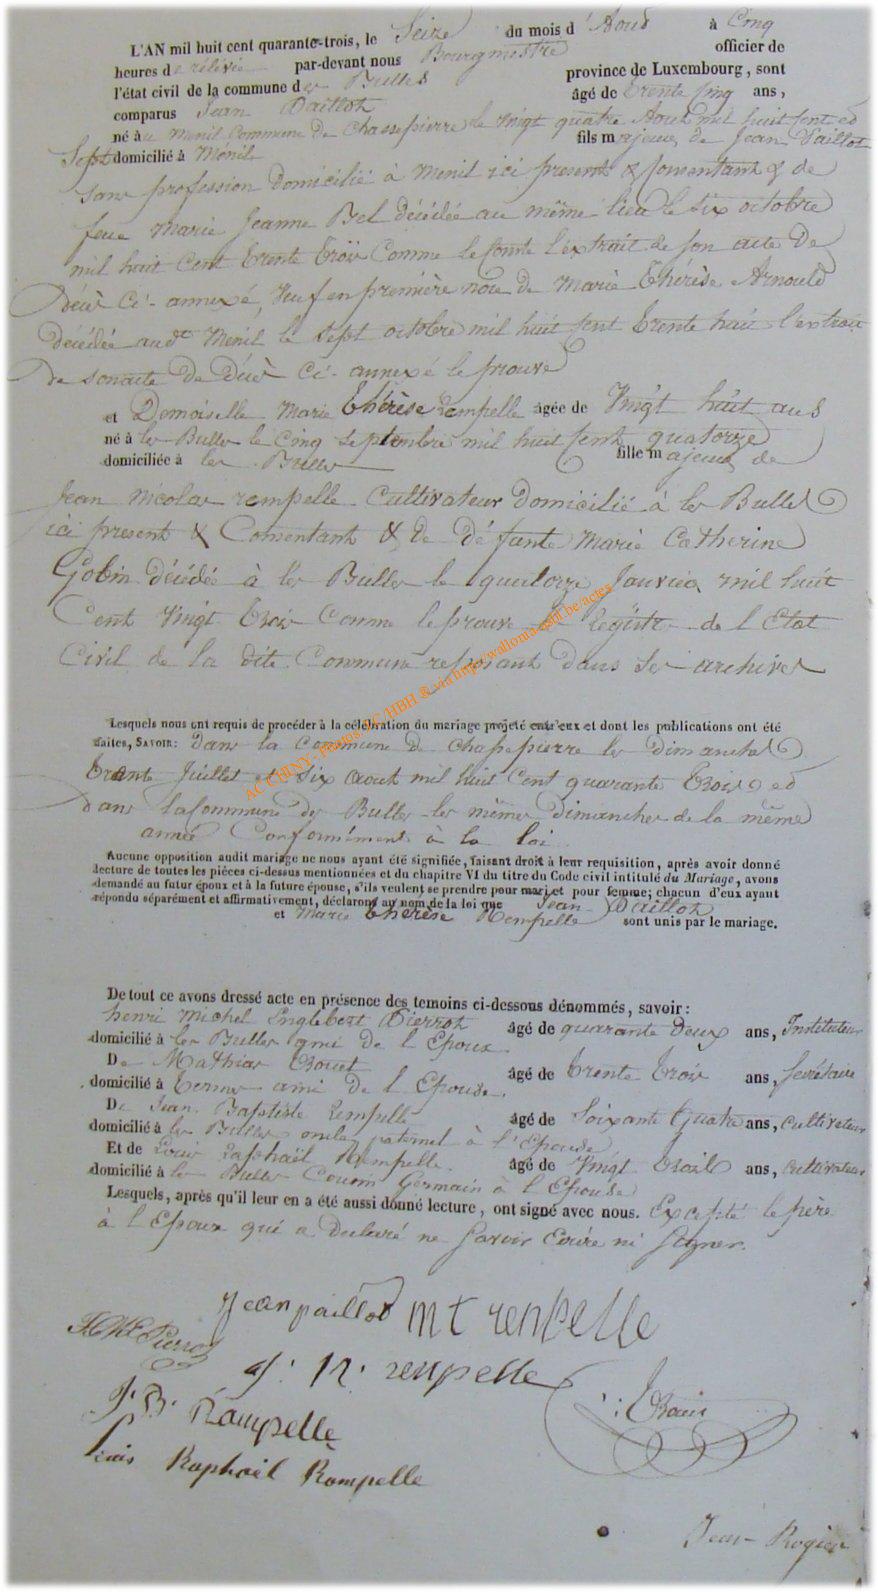 L'AN mil huit cent quarante-trois, le Seize du mois d'Aout à Cinq
heures de rélévée par-devant nous Bourgmestre officier de
l'état civil de la commune des Bulles province de Luxembourg, sont
comparus Jean Paillot âgé de trente cinq ans,
né à u Menil Commune de Chassepierre le Vingt quatre Aout mil huit cent et
Sept domicilié à Ménil fils majeur de Jean Paillot
Sans profession domicilié à Menil ici present & Consentant & de
feue Marie Jeanne Bel décédée au même lieu le six octobre
mil huit cent trente trois Comme le porte l'extrait de son acte De
Décès Ci-annexé, Veuf en première noce de Marie Thérèse Arnould
Décédée audt Menil le sept octobre mil huit cent trente huit l'extrait
de son acte De Décès Ci-annexé le prouve
et Demoiselle Marie thérèse rempelle âgée de Vingt huit ans
né à les Bulles le Cinq Septembre mil huit cent quatorze
domiciliée à les Bulles fille majeure de
Jean Nicolas rempelle Cultivateur Domicilié à les Bulles
ici present & Consentant & De défunte Marie Catherine
Gobin décédée à les Bulles le quatorze Janvier mil huit
Cent Vingt trois Comme le prouve le Registre de l'Etat
Civil de la dite Commune reposant dans ses archives
ACCHINY - Photos JC/HBH & via http://walloma-gail.be/actes
Lesquels nous ont requis de procéder à la célébration du mariage projeté entr'eux et dont les publications ont été
faites, SAVOIR: Dans la Commune De Chassepierre les dimanches
trente Juillet et Six aout mil huit Cent quarante trois et
dans la Commune des Bulles les mêmes Dimanches de la même
année Conformément à la loi
Aucune opposition audit mariage ne nous ayant été signifiée, faisant droit à leur requisition, après avoir donné
lecture de toutes les pièces ci-dessus mentionnées et du chapitre VI du titre du Code civil intitulé du Mariage, avons
demandé au futur époux et à la future épouse, s'ils veulent se prendre pour mari et pour femme; chacun d'eux ayant
répondu séparément et affirmativement, déclarons au nom de la loi que Jean Paillot
et Marie thérèse Rempelle sont unis par le mariage.
De tout ce avons dressé acte en présence des temoins ci-dessous dénommés, savoir:
henri Michel Englebert Pierrot âgé de quarante Deux ans, Instituteur
domicilié à les Bulles ami de l'Epoux
De Mathias âgé de trente trois ans, Secrétaire
domicilié à termes ami de l'Epouse.
De Jean Baptiste rempelle âgé de Soixante Quatre ans, Cultivateur
domicilié à les Bulles oncle paternel à l'Epouse
Et de Louis Raphaël rempelle âgé de Vingt trois ans, Cultivateur
domicilié à les Bulles Cousin Germain à l'Epouse
Lesquels, après qu'il leur en a été aussi donné lecture, ont signé avec nous. Excepté le père
à l'Epoux qui a Déclaré ne Savoir Ecrire ni Signer.
Jean paillot mt renpelle
H M E Pierrot
J. N. renpelle
J. B. Rampelle
Louis Raphaël Rampelle
Jean Rogier